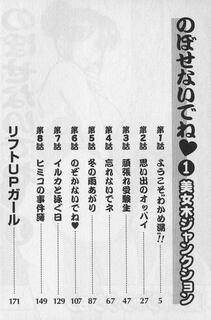 のぼせないでね♥
①美女木ジャンクション
第1話 ようこそ「わかめ湯」!! 5
第2話 思い出のオッパイ 27
第3話 頑張れ受験生 47
第4話 忘れないでネ 67
第5話 冬の雨あがり 87
第6話 のぞかないでね♥ 107
第7話 イルカと泳ぐ日 129
第8話 ヒミコの事件簿 149
リフトUPガール 171